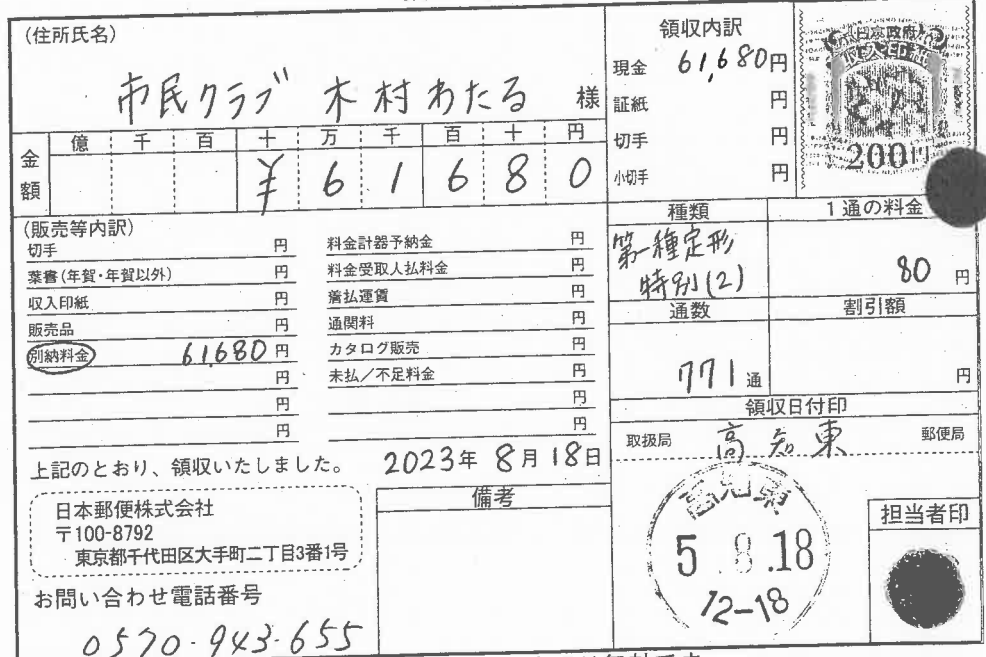 (住所氏名)
市民クラブ 木村わたる 様
金額 億 千 百 十 万 千 百 十 円
¥ 6 1 6 8 0
領収内訳
現金 61,680円
証紙 円
切手 円
小切手 円
日本政府
収入印紙
200円
(販売等内訳)
切手 円
葉書(年賀・年賀以外) 円
収入印紙 円
販売品 円
別納料金 61,680円
円
円
円
料金計器予納金 円
料金受取人払料金 円
着払運賃 円
通関料 円
カタログ販売 円
未払/不足料金 円
円
円
種類
第一種定形
特別(2)
1通の料金
80 円
通数
771通
割引額
円
上記のとおり、領収いたしました。 2023年 8月 18日
日本郵便株式会社
〒100-8792
東京都千代田区大手町二丁目3番1号
お問い合わせ電話番号
0570-943-655
備考
領収日付印
取扱局 高知東 郵便局
高知東
5.8.18
12-18
担当者印